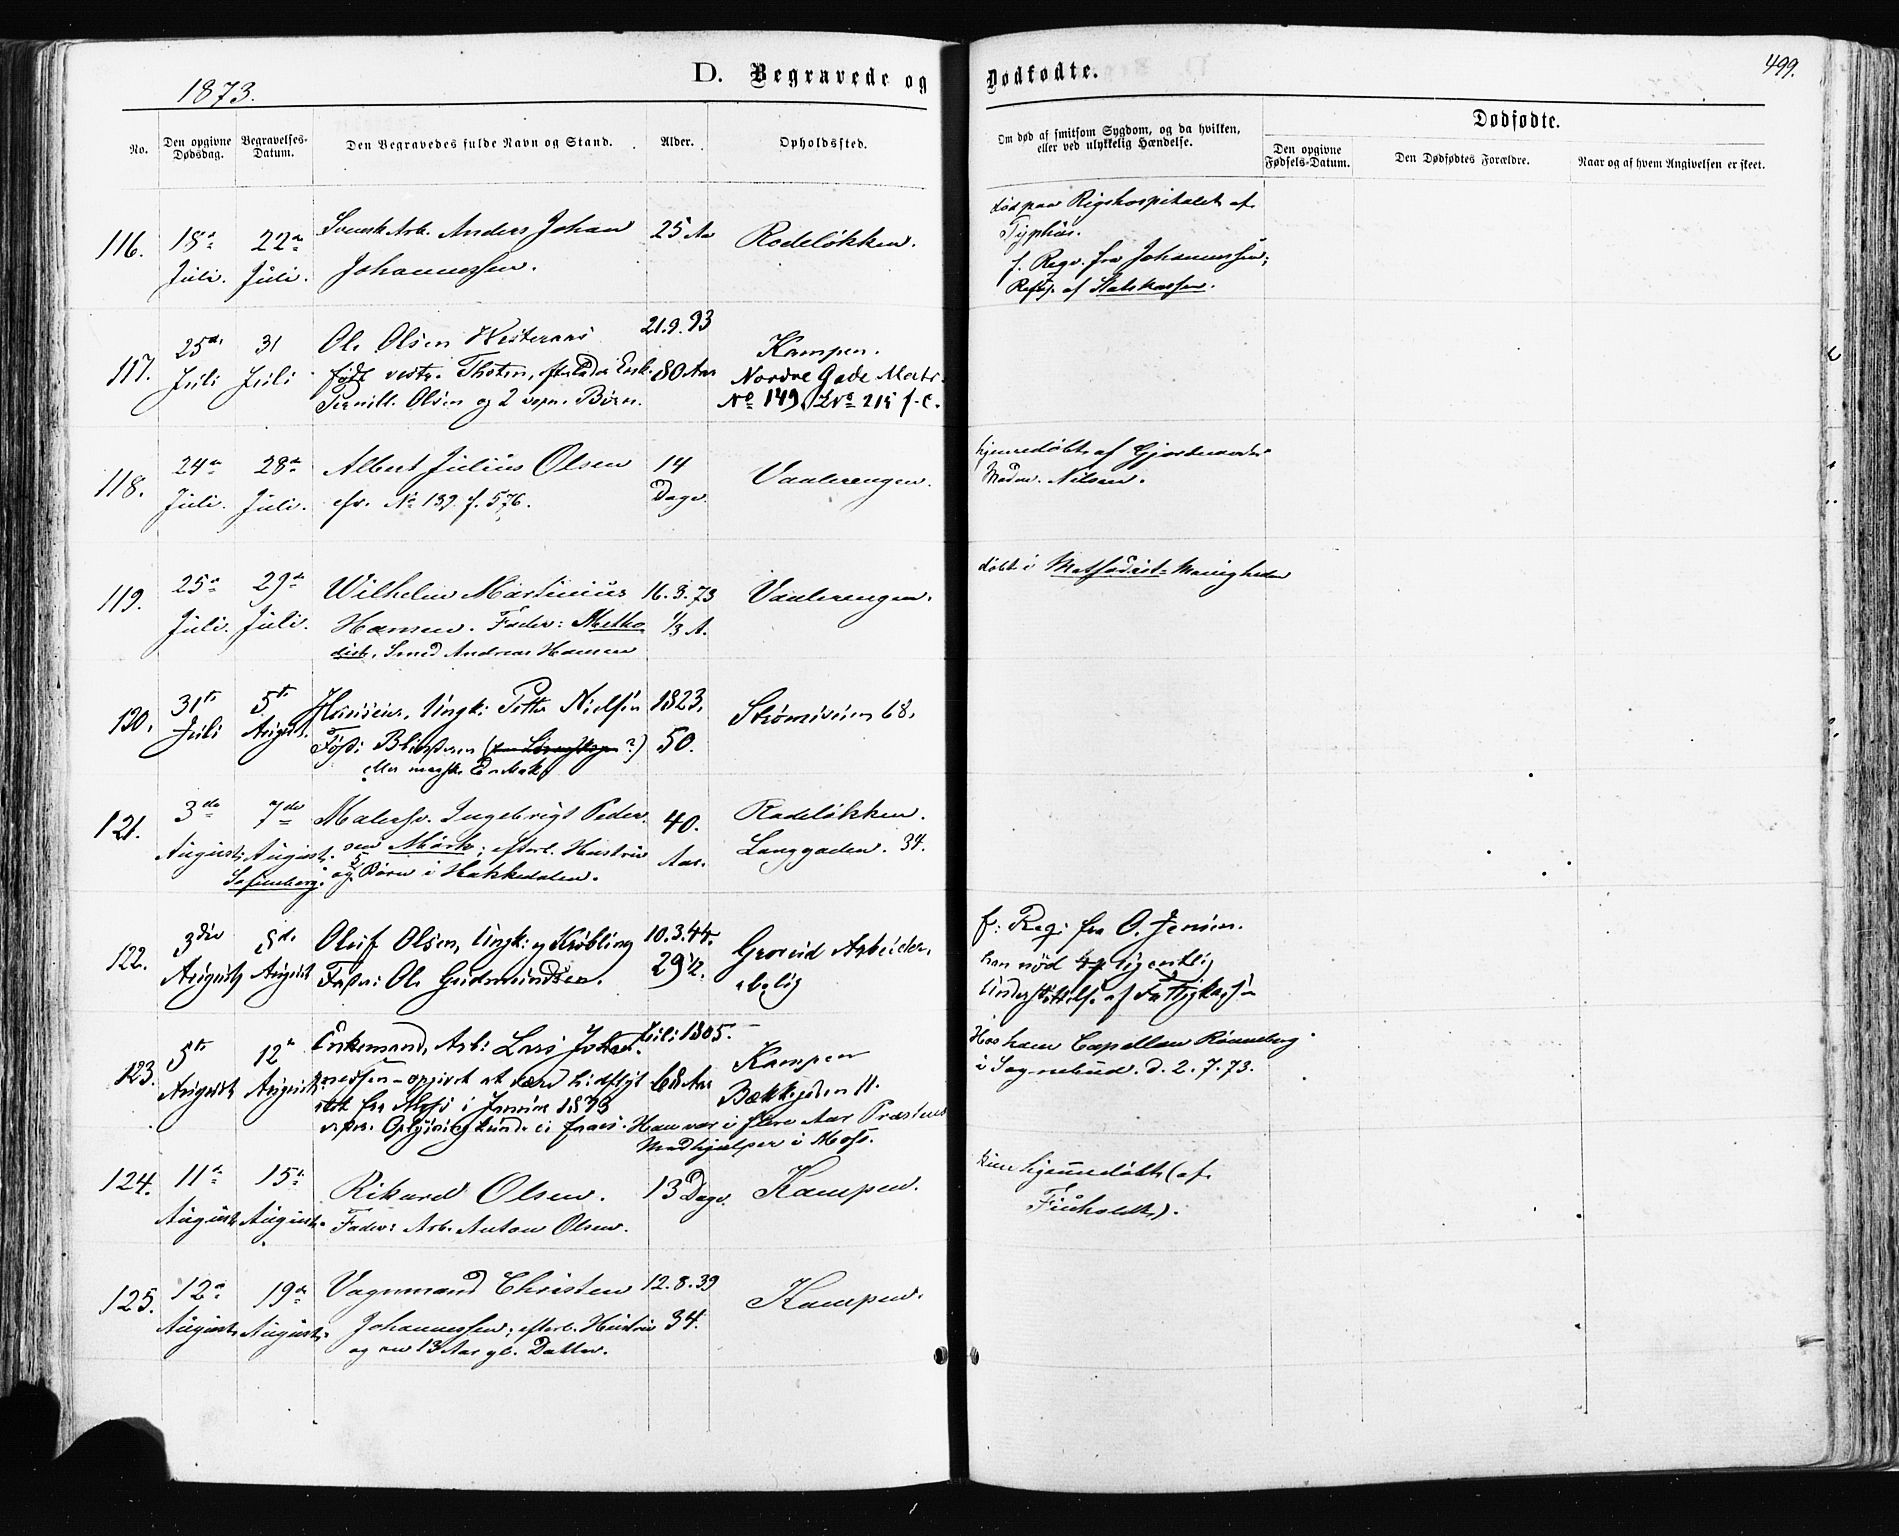 1873.
D. Begravede og Dødfødte.
499.
No.
Den opgivne Dødsdag.
Begravelses-Datum.
Den Begravedes fulde Navn og Stand.
Alder.
Opholdssted.
Om død af smitsom Sygdom, og da hvilken,
eller ved ulykkelig Hændelse.
Dødfødte.
Den opgivne Fødsels-Datum.
Den Dødfødtes Forældre.
Naar og af hvem Angivelsen er skeet.
116.
18de Juli.
22de Juli.
Svensk Arb. Anders Johan
Johannessen.
25 Aar
Rodeløkken.
død paa Rigshospitalet af
Typhus.
f. Regn. fra Johannessen;
Refus. af Statskassen.
117.
25de Juli
31 Juli
Ole Olsen Westeraas
født vestre Thoten, efterlader Enke
Pernille Olsen og 2 Børn.
21.9.93
80 Aar
Kampen.
Nordre Gade Matr.
No 149, LNo 215 f. C.
118.
24de Juli.
28de Juli.
Albert Julius Olsen
cfr. No 139. f. 576.
14
Dage.
Vaalerengen.
hjemmedøbt af Gjordemoder
Madm. Nilsen.
119.
25de Juli.
29de Juli.
Wilhelm Martinius
Hansen. Fader: Metho
dist, Smed Andreas Hansen
16.3.73
1/3 A.
Vaalerengen.
døbt i Methodist-Menigheden
120.
31te Juli
5te August.
Huseier, Ungk: Petter Nielsen
Født:
1823.
50.
Strømsveien 68.
121.
3die August
7de August.
Malersv. Ingebrigt Peder
sen Mørk; efterl. Hustru
og 5 Børn i Hakkedalen.
Sofienberg.
40.
Aar.
Rodeløkken.
Langgaden. 34.
122.
3die August
8de August
Oluf Olsen, Ungk: og Krøbling
Fader: Ole Gudmundsen.
10.3.44.
29 1/2.
Grønvid Arbeider
bolig
f: Reg: fra O. Jensen.
han nød eigentlig
Understøttelse af Fattigkasse
123.
5te August
12te August
Enkemand, Arb: Lars Johan
nessen – opgivet at være hidflyt
tet fra Moss i Januar 1873
Oplysning kunde ei faaes.
Juli 1805.
68 Aar
Kampen
Bækkegaden 11.
Han var i flere Aar Præstens
Medhjælper i Moss.
Hos ham Capellan Rønneberg
i Sognebud. d. 2.7.73.
124.
11te August
15de August.
Rikard Olsen.
Fader: Arb. Anton Olsen.
13 Dage.
Kampen.
kun hjemmedøbt (af
125.
12te August
19de August.
Vognmand Christen
Johannessen; efterl. Hustru
og en 13 Aar gl. Datter.
12.8.39
34.
Kampen.